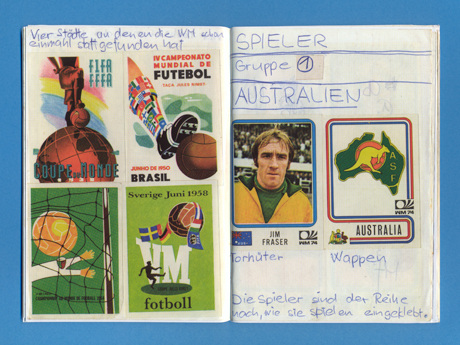 Vier Städte an denen die WM schon
einmahl stattgefunden hat
FIFA
FFFA
COUPE DU MONDE
IV CAMPEONATO
MUNDIAL DE
FUTEBOL
TAÇA JULES RIMET
JUNHO DE 1950
BRASIL
CHAMPIONNAT DU MONDE DE FOOTBALL
Sverige Juni 1958
VM
fotboll
SPIELER
Gruppe 1
AUSTRALIEN
JIM
FRASER
WM 74
Torhüter
ASF
WM 74
AUSTRALIA
Wappen
Die Spieler sind der Reihe
nach, wie sie spielen eingeklebt.